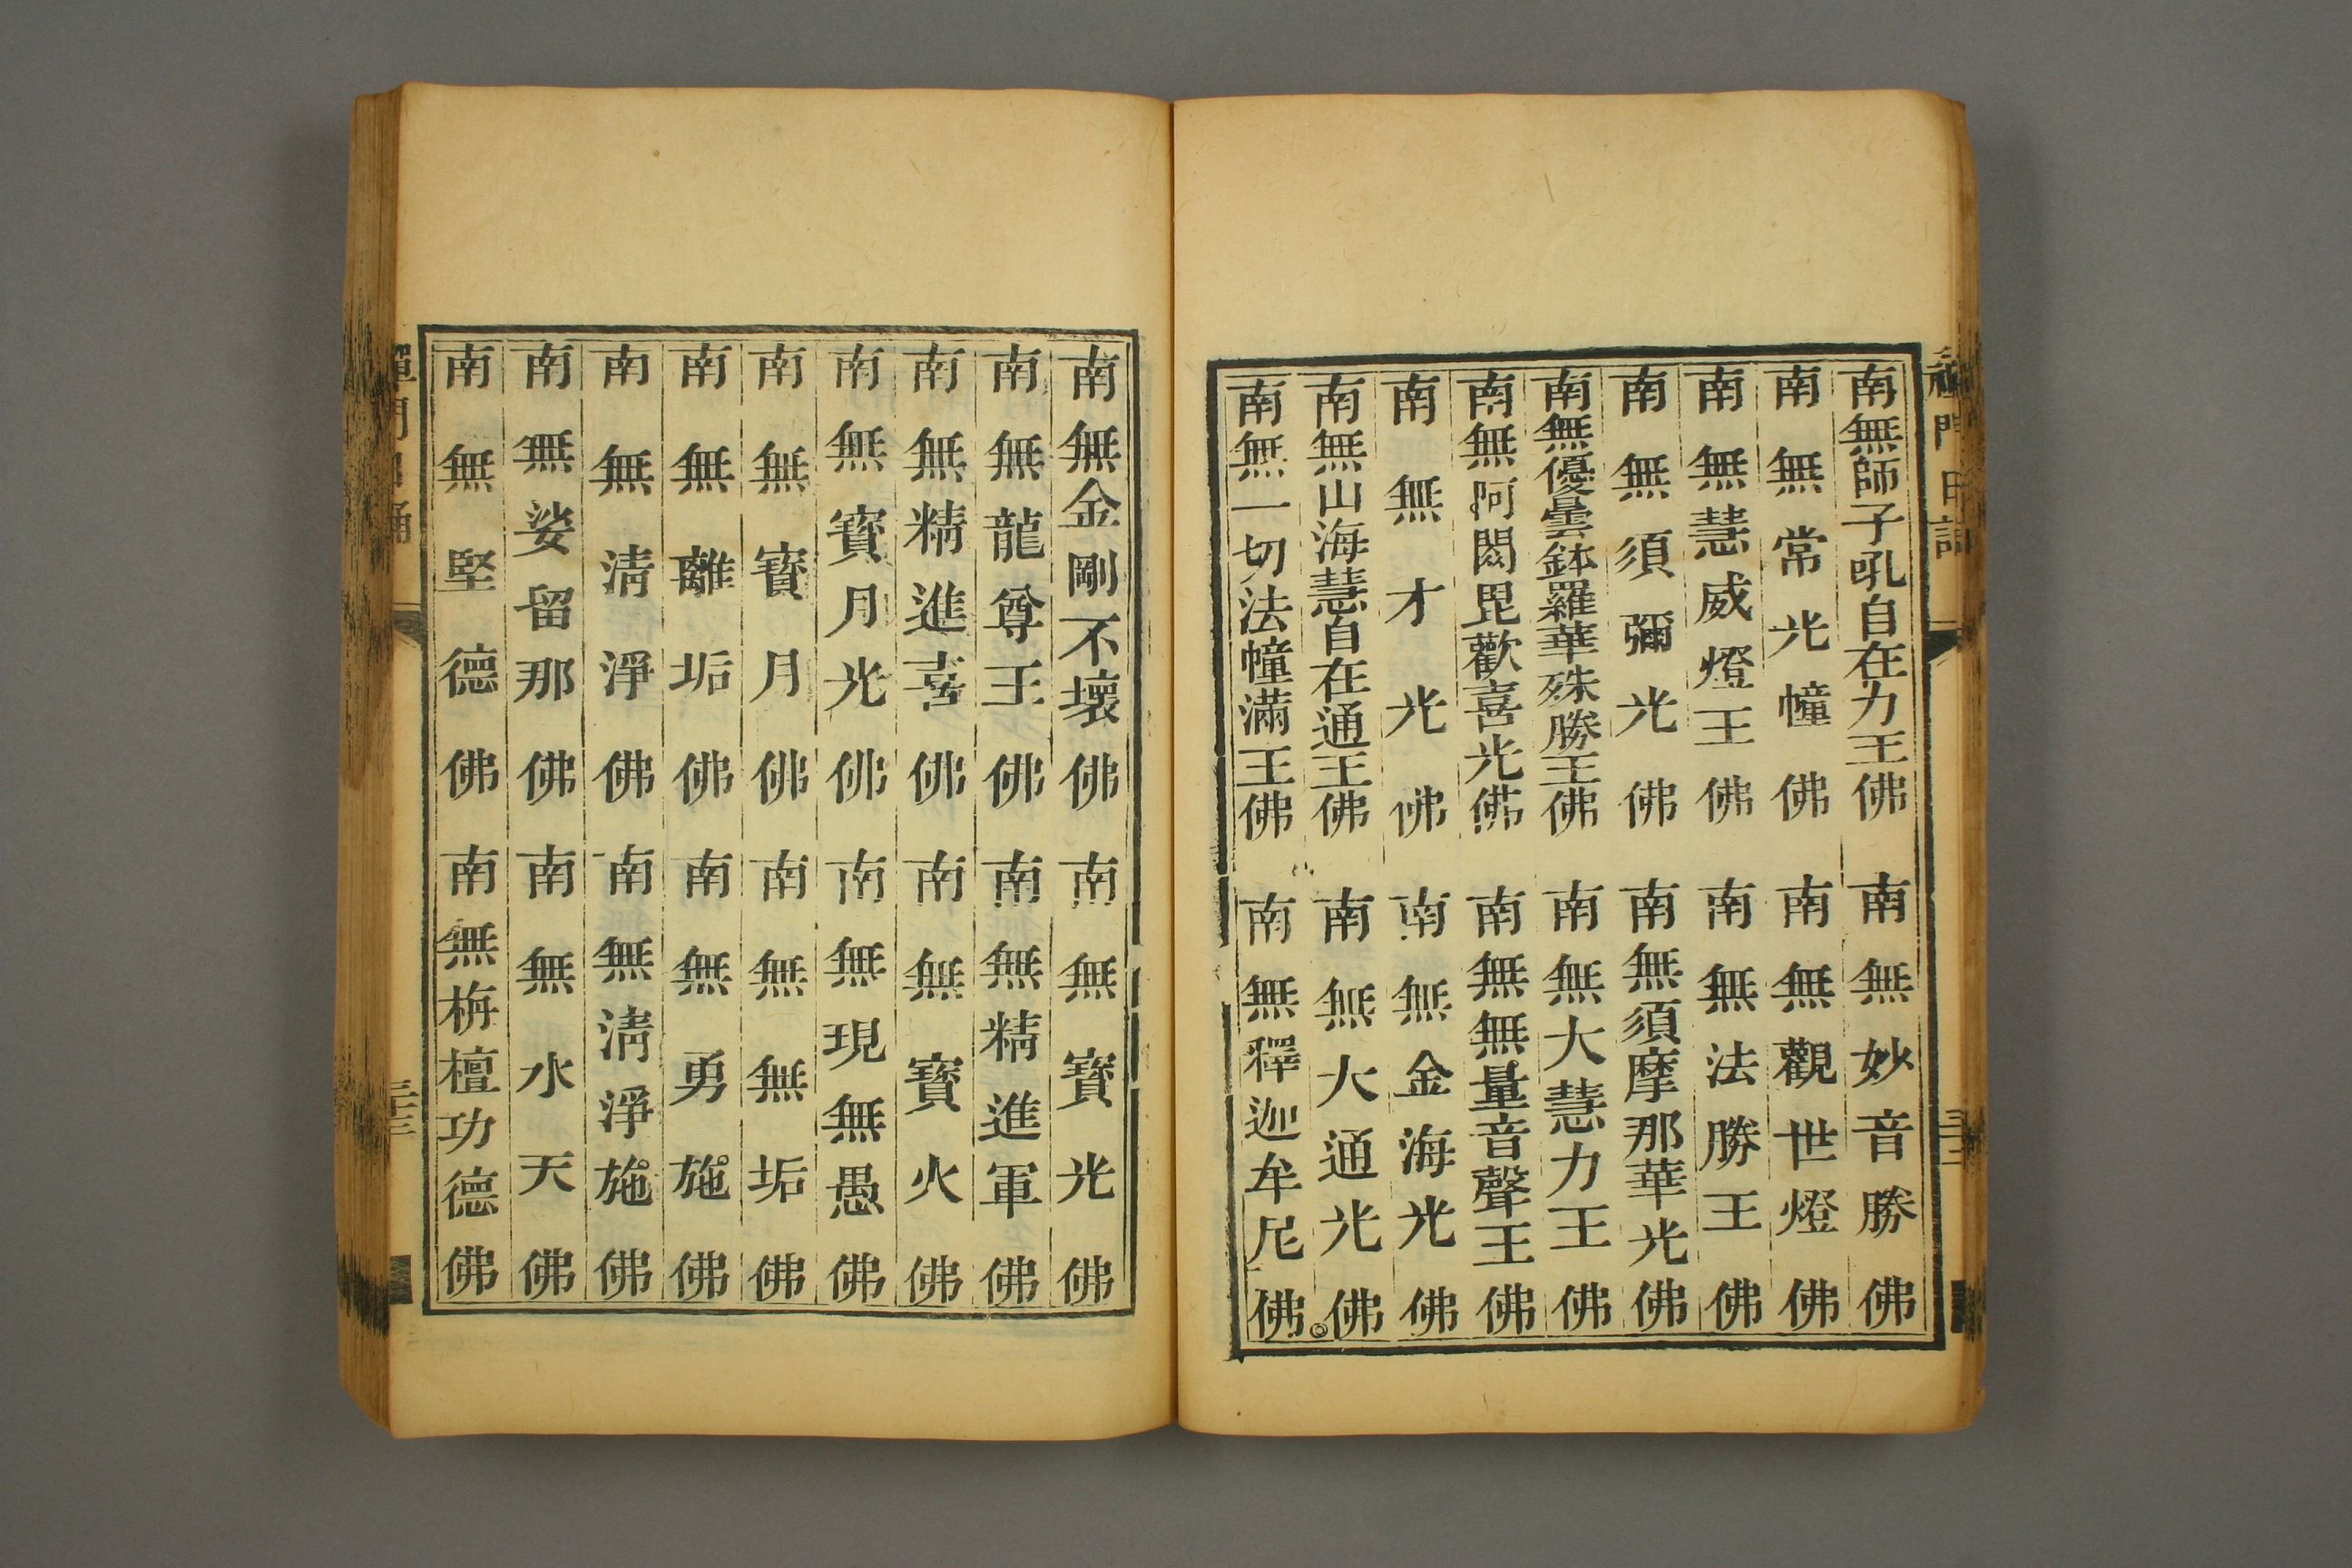 南無師子吼自在力王佛　南無妙音勝佛
南無常光幢佛　南無觀世燈佛
南無慧威燈王佛　南無法勝王佛
南無須彌光佛　南無須摩那華光佛
南無優曇鉢羅華殊勝王佛　南無大慧力王佛
南無阿閦毘歡喜光佛　南無無量音聲王佛
南無才光佛　南無金海光佛
南無山海慧自在通王佛　南無大通光佛
南無一切法幢滿王佛　南無釋迦牟尼佛
南無金剛不壞佛　南無寶光佛
南無龍尊王佛　南無精進軍佛
南無精進喜佛　南無寶火佛
南無寶月光佛　南無現無愚佛
南無寶月佛　南無無垢佛
南無離垢佛　南無勇施佛
南無清淨佛　南無清淨施佛
南無娑留那佛　南無水天佛
南無堅德佛　南無栴檀功德佛